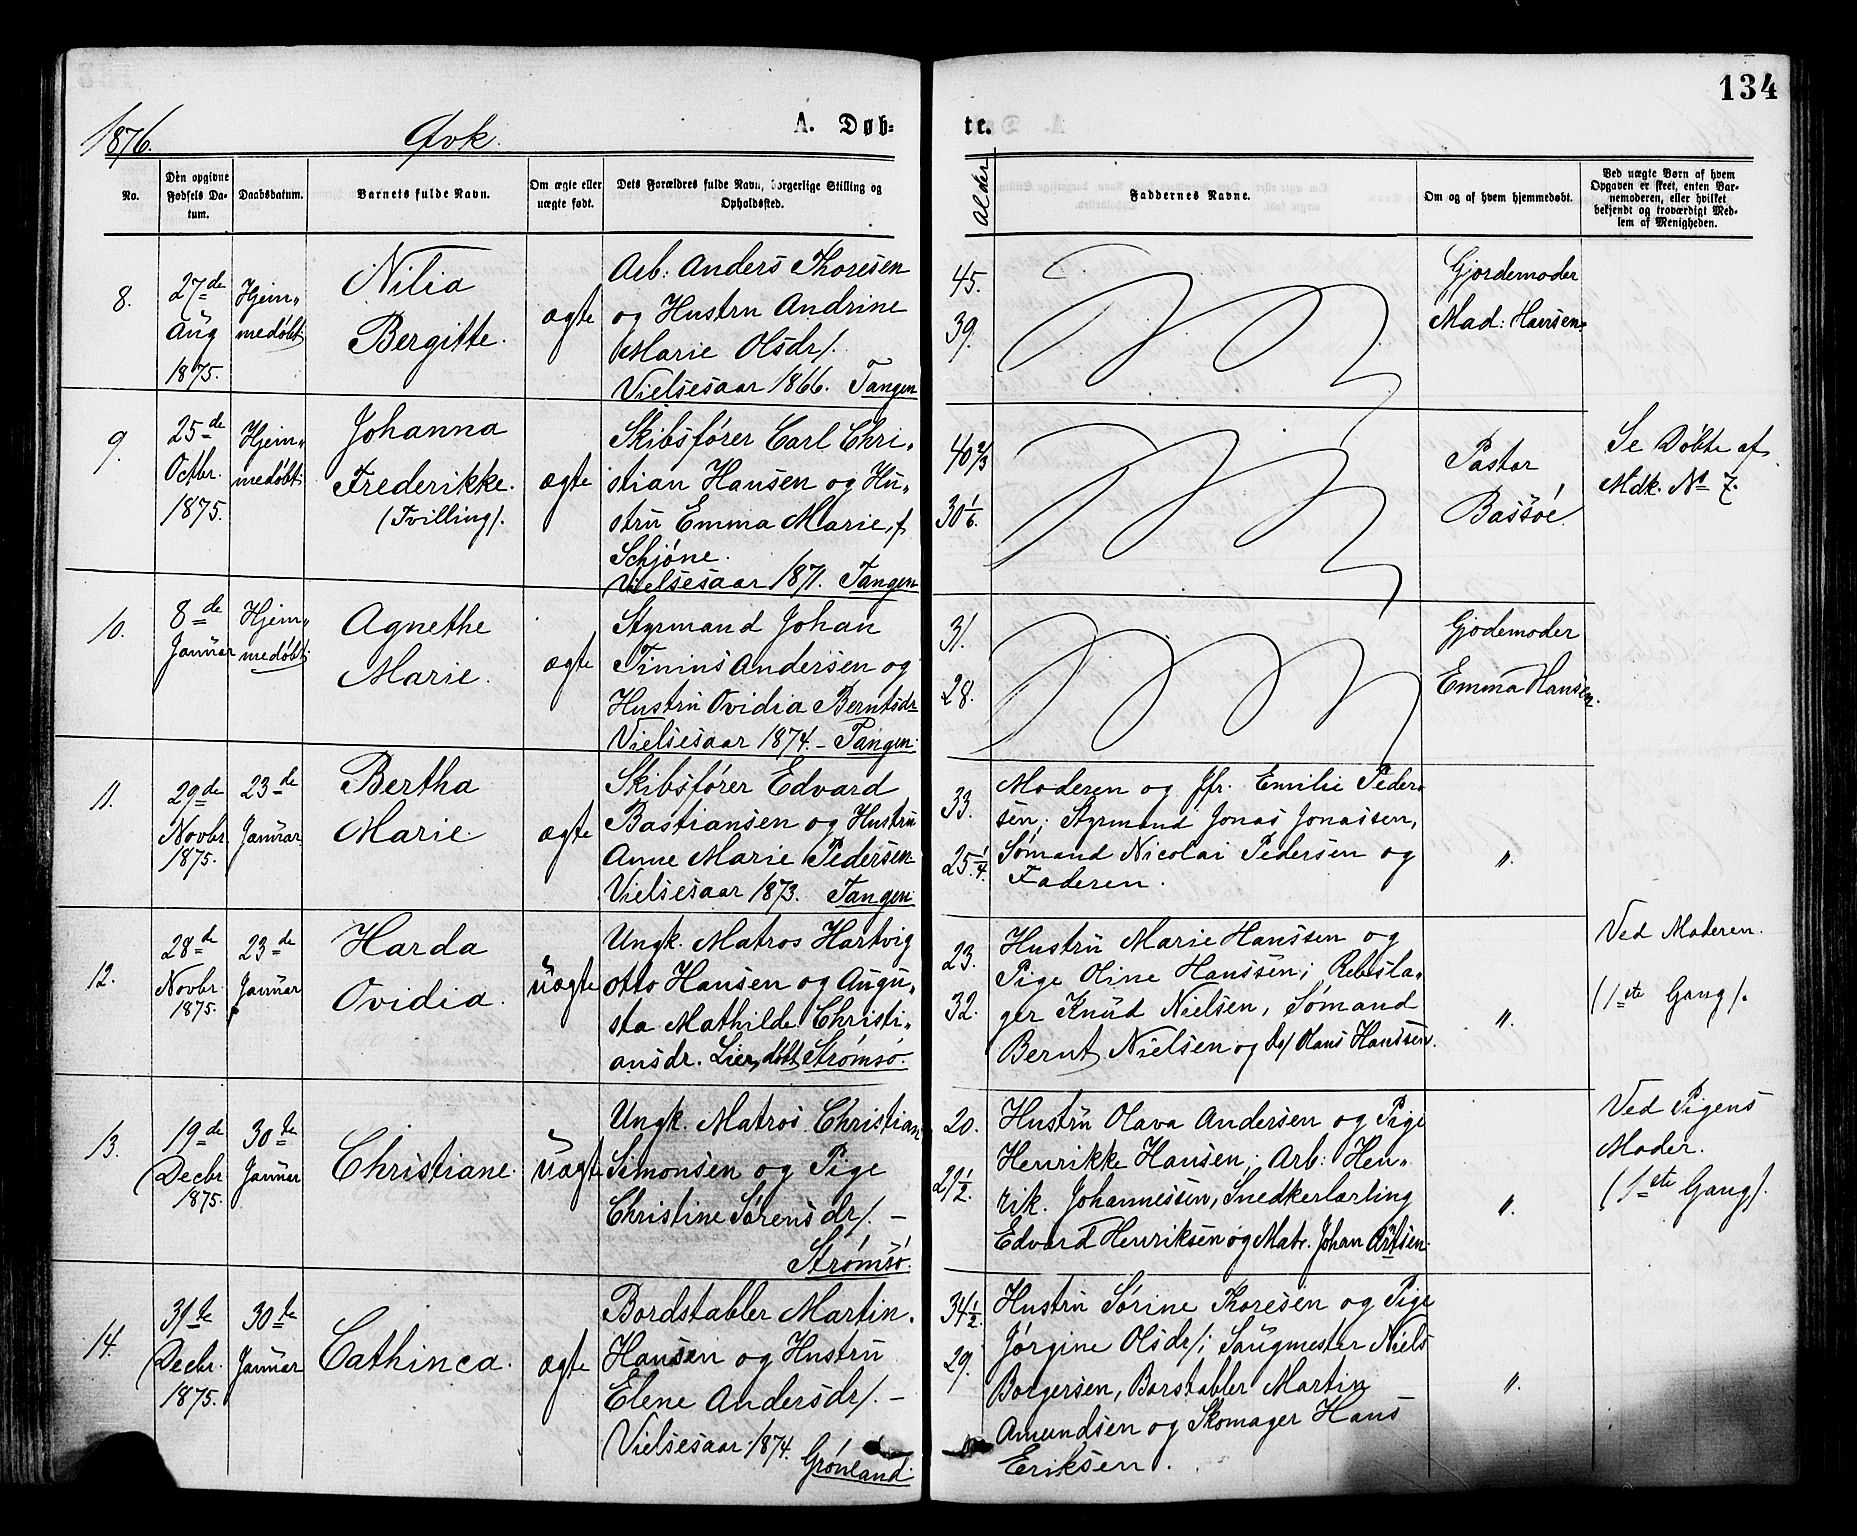 134
1876.
Qvk.
A. Døb-
te.
No.
Den opgivne Fødsels Da-tum.
Daabsdatum.
Barnets fulde Navn.
Om ægte eller uægte født.
Dets Forældres fulde Navn, borgerlige Stilling og Opholdssted.
Alder
Faddernes Navne.
Om og af hvem hjemmedøbt.
Ved uægte Børn af hvem Opgaven er skeet, enten Bar-nemoderen, eller hvilket bekjendt og troværdigt Med-lem af Menigheden.
8.
27de
Aug
1875.
Hjem„
medøbt
Nilia
Bergitte.
ægte
Arb: Anders Thoresen
og Hustru Andrine
Marie Olsdr/.
Vielsesaar 1866. Tangen
45.
39.
Gjordemoder
Mad: Hansen.
9.
25de
Octbr.
1875.
Hjem„
medøbt
Johanna
Frederikke.
(Tvilling/.
ægte
Skibsfører Carl Chri„
stian Hansen og Hu„
stru Emma Marie, f
Schjøne.
Vielsesaar 1871. Tangen
40 2/3
30 1/6.
Pastor
Bassøe.
Se Døbte af
Mdk. No 7.
10.
8de
Januar
Hjem„
medøbt
Agnethe
Marie.
ægte
Styrmand Johan
Tinius Andersen og
Hustru Ovidia Berntsdr
Vielsesaar 1874. – Tangen.
31.
28.
Gjodemoder
Emma Hansen.
11.
29de
Novbr.
1875.
23de
Januar
Bertha
Marie.
ægte
Skibsfører Edvard
Bastiansen og Hustru
Anne Marie Pedersen
Vielsesaar 1873. Tangen
33.
25 1/4.
Moderen og Jfr. Emilie Peder„
sen; Styrmand Jonas Jonassen,
Sømand Nicolai Pedersen og
Faderen.
„.
12.
28de
Novbr.
1875.
23de
Januar
Harda
Ovidia.
uægte
Ungk. Matros Hartvig
Otto Hansen og Augu„
sta Mathilde Christi„
ansdr. Lier, døbt Strømsø.
23.
32.
Hustru Marie Hanssen og
Pige Oline Hanssen; Rebsla„
ger Knud Nielsen, Sømand
Bernt Nielsen og do/ Hans Hanssen.
„.
Ved Moderen.
(1ste Gang/.
13.
19de
Decbr.
1875.
30te
Januar
Christiane.
uægte
Ungk. Matros Christian
Simonsen og Pige
Christine Sørensdr/. –
Strømsø.
20.
21 1/2.
Hustru Olava Andersen og Pige
Henrikke Hansen; Arb: Hen„
rik. Johannessen, Snedkerlærling
Edvard Henriksen og Matr. Johan
„.
Ved Pigens
Moder.
(1ste Gang/.
14.
31te
Decbr.
1875.
30te
Januar
Cathinca.
ægte
Bordstabler Martin
Hansen og Hustru
Elene Andersdr/. –
Vielsesaar 1874.
Grønland.
34 1/2.
29.
Hustru Sørine Thoresen og Pige
Jørgine Olsdr/; Saugmester Niels
Borgersen, Borstabler Martin
Amundsen og Skomager Hans
Eriksen.
„.